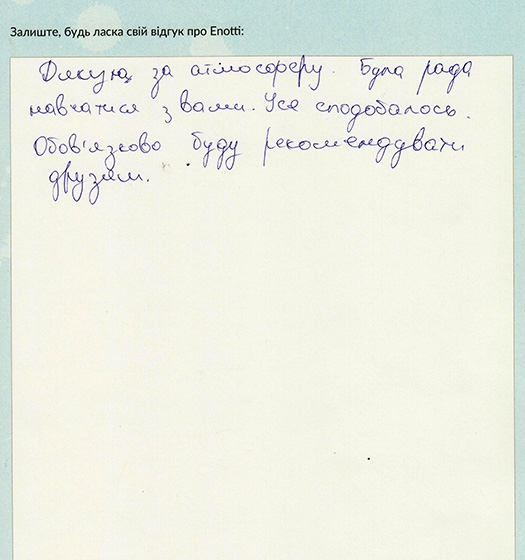 Залиште, будь ласка свій відгук про Enotti:
Дякую за атмосферу. Була рада
навчатися з вами. Усе сподобалось.
Обов'язково буду рекомендувати
друзям.